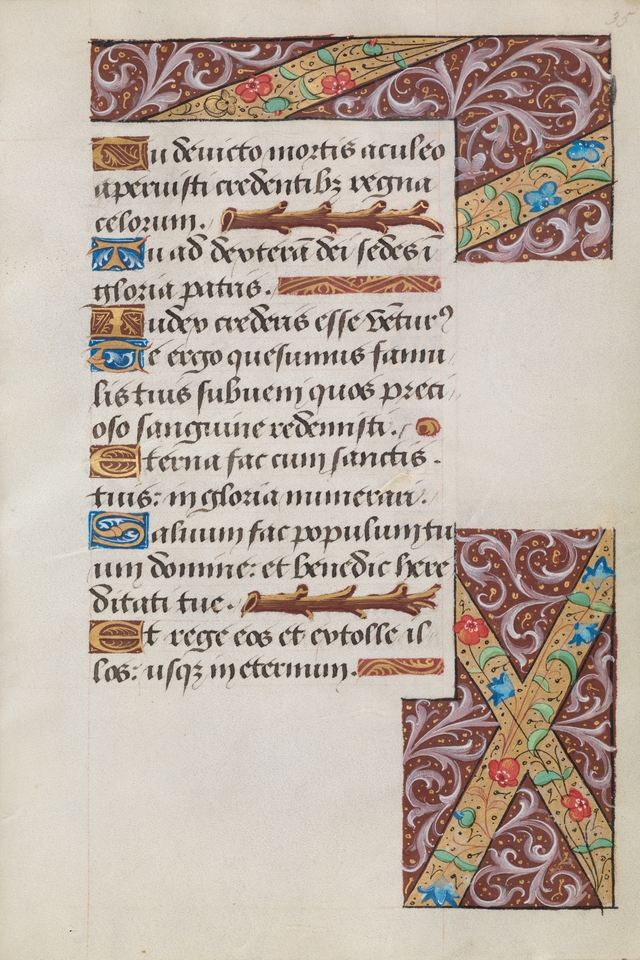 35
Tu deuicto mortis aculeo
aperuisti credentibz regna
celorum.
Tu ad dexterā dei sedes ī
gloria patris.
Iudex crederis esse vētur⁹
Te ergo quesumus famu
lis tuis subueni quos preci
oso sanguine redemisti.
Eterna fac cum sanctis
tuis: in gloria munerari.
Saluum fac populum tu
um domine: et benedic here
ditati tue.
Et rege eos et extolle il
los: usqz in eternum.